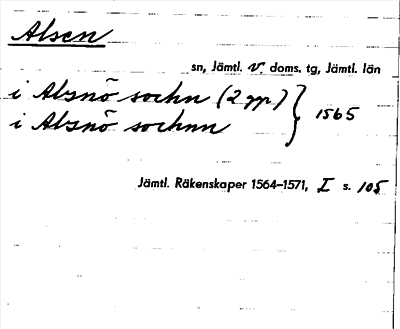 Alsen
sn, Jämtl. v. doms. tg, Jämtl. län
i Alsnö sochn (2 ggr) } 1565
i Alsnö sochnn
Jämtl. Räkenskaper 1564–1571, I s. 105